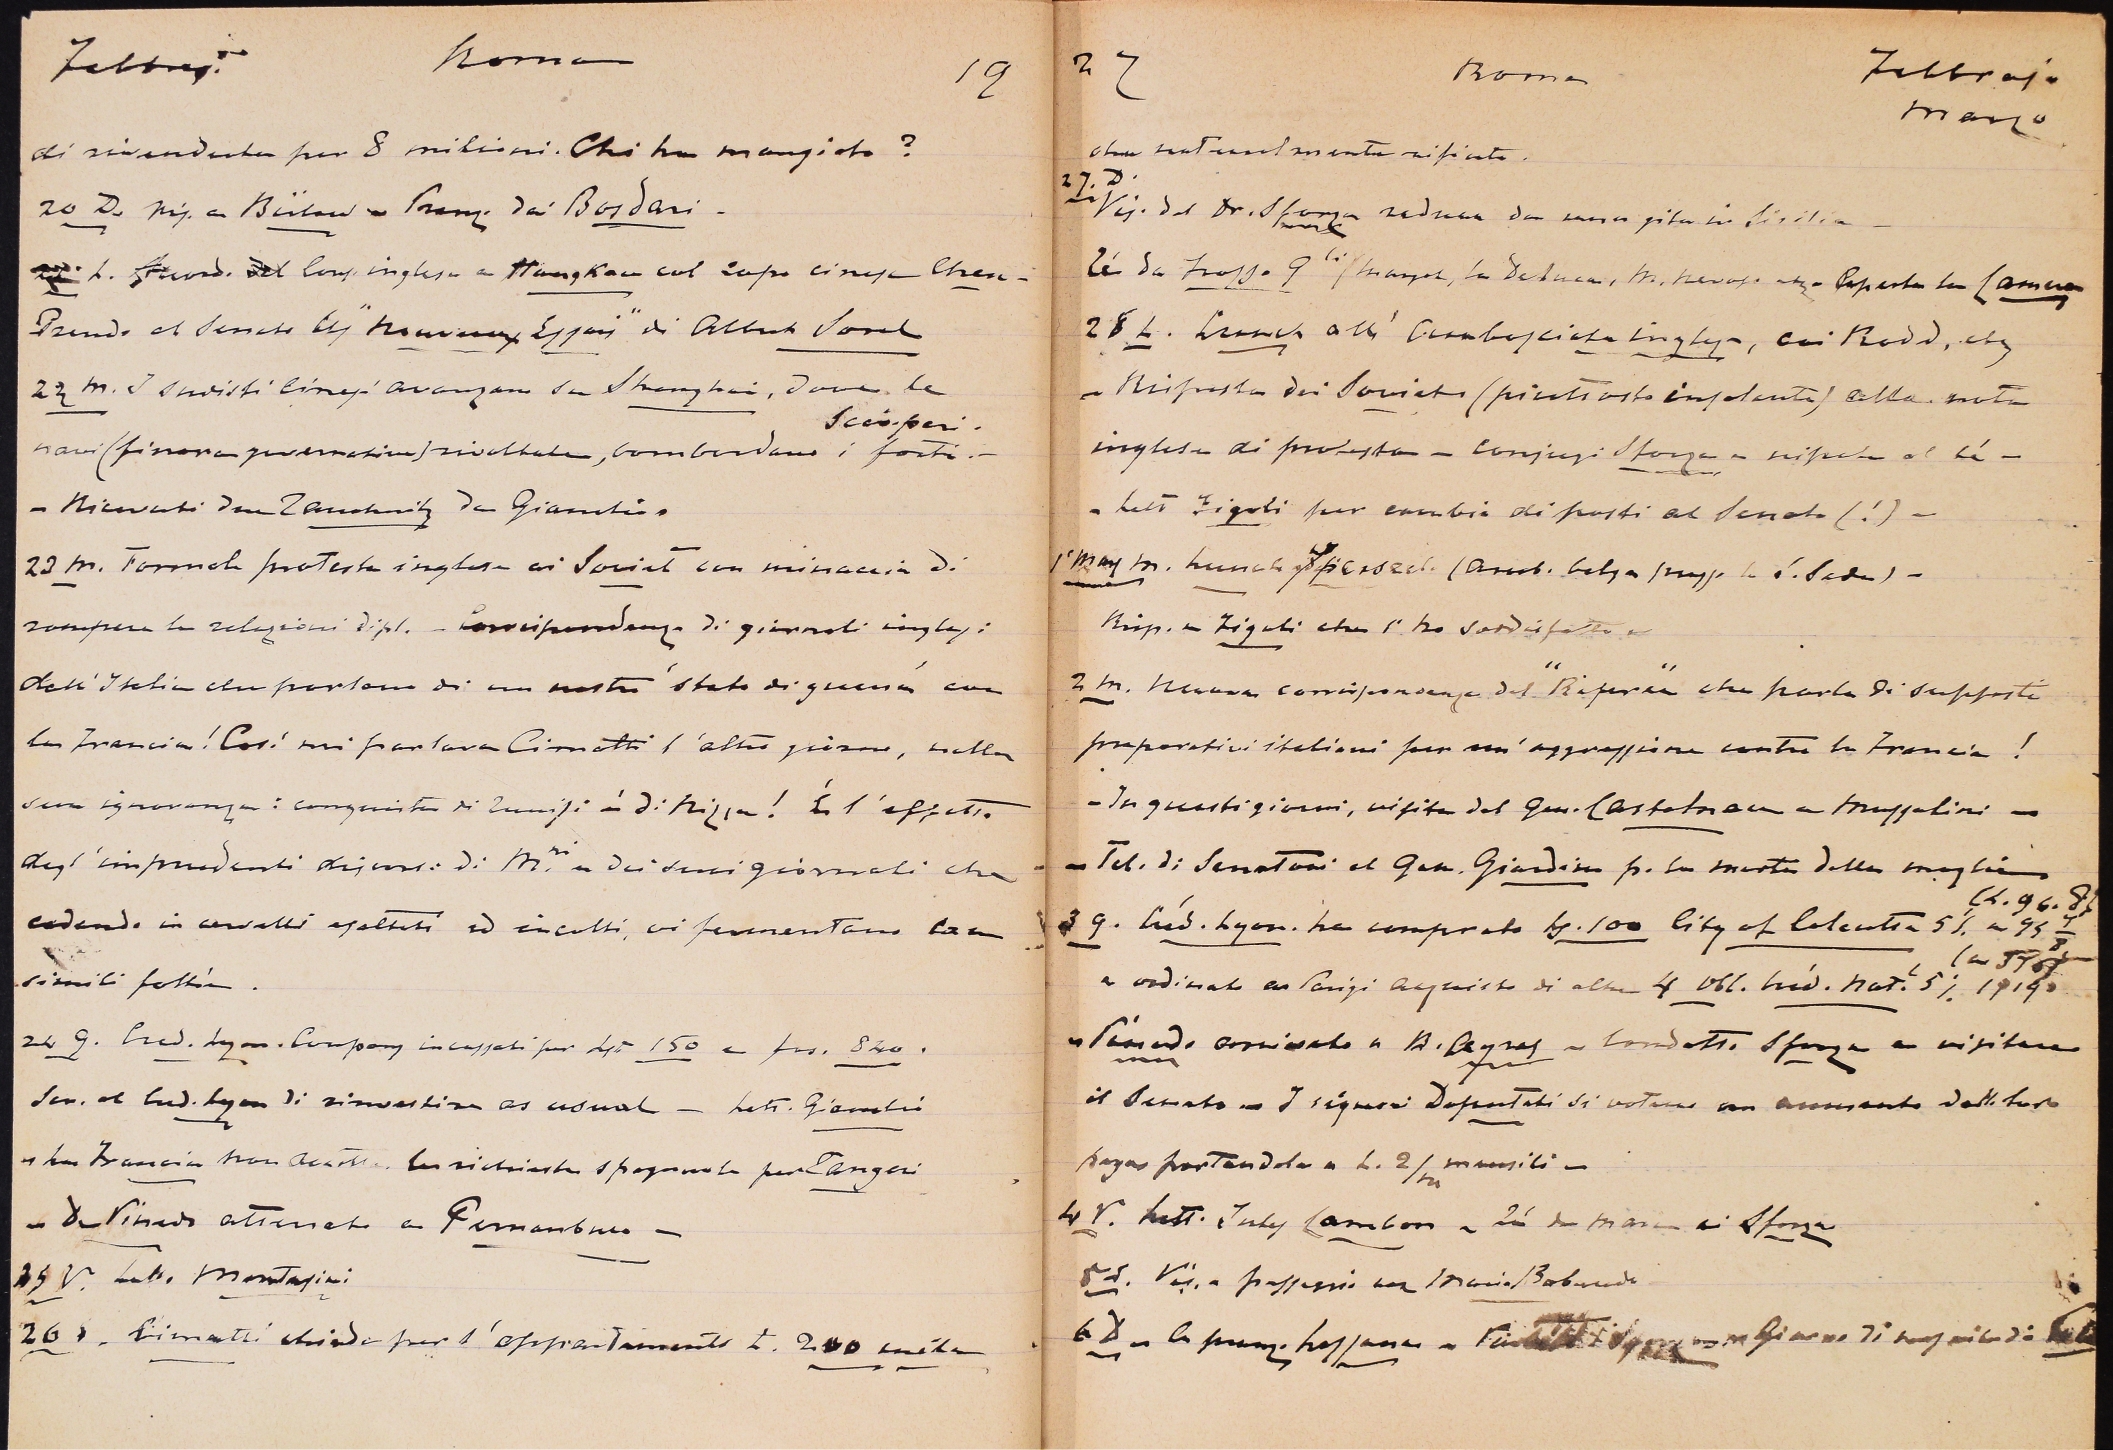 Febbrajo Roma 19
di rivenduta per 8 milioni. Chi ha mangiato?
20 D. Vis. a Bülow - Pranz. dai Bosdari -
L. Accord. del Cons. inglese a Hangkau col capo cinese Chen -
Prendo al Senato "Nouveaux Essais" di Albert Sorel
22 M. I sudisti cinesi avanzano su Shanghai, dove le
Scioperi.
navi (finora governative) rivoltate, bombardano i forti. -
- Ricevuti due Tauchnitz da Giannini
23 M. Formale protesta inglese ai Soviet con minaccia di
rompere le relazioni dipl. - Corrispondenze di giornali inglesi
dall'Italia che parlano di un nostro stato di guerra con
la Francia! Così mi parlava Cimatti l'altro giorno, nella
sua ignoranza: conquista di Tunisi e di Nizza! È l'effetto
degl'imprudenti discorsi di M.ni e dei suoi giornali che
cadendo in cervelli esaltati ed incolti, vi fermentano con
simili follie.
24 G. Cred. Lyon. Coupons incassati per 150 e frs. 820.
Scr. al Cred. Lyon di rinvestire as usual - Lett.
- La Francia non accetta la richiesta spagnuola per Tangeri
- De Pinedo atterrato a Pernambuco -
25 V. Lett. Montagini
26 S. Cimatti chiede per l'appartamento L. 200
27 Roma Febbrajo
Marzo
che naturalmente rifiuto.
27. D.
Vis. del Dr. Sforza reduce da una gita in Sicilia -
Tè da - Aperta la Camera
28 L. Lunch all'Ambasciata inglese, coi Rodd, etc
- Risposta dei Soviets (piuttosto insolente) alla nota
inglese di protesta - conjugi Sforza a visita al tè -
- Lett Zigoli per cambio di posti al Senato (!) -
1° Marz M. Lunch (Amb. belga presso la S. Sede) -
Risp. a Zigoli che l'ho soddisfatto
2 M. Nuova corrispondenza del che parla di supposti
preparativi italiani per un'aggressione contro la Francia!
- In questi giorni, visita del Gen. Castelnau a Mussolini -
- Tel. di Senatori al Gen. Giardino p. la morte della moglie
(L. 96.
3 G. Créd. Lyon. ha comprato 100 City of Calcutta 5% a 95 7/8
e ordinato a Parigi acquisto di altre 4 Obl. Créd. Nat. 5% 1919
- Pinedo arrivato a B. Ayres - Condotto Sforza a visitare
il Senato - I signori Deputati si votano un aumento della loro
paga portandola a L. 2/m mensili -
4 V. Lett. Jules Cambon - Tè da ai Sforza
5 S. Vis. e passeggio con
6 D.